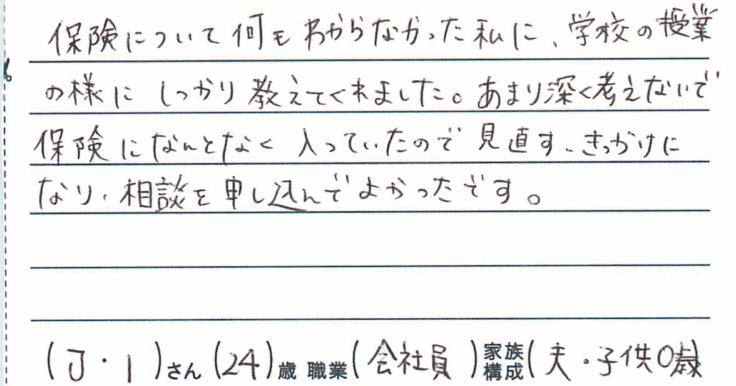 保険について何もわからなかった私に、学校の授業
の様にしっかり教えてくれました。あまり深く考えないで
保険になんとなく入っていたので見直す、きっかけに
なり、相談を申し込んでよかったです。
(J・I)さん(24)歳 職業(会社員)家族構成(夫・子供0歳)